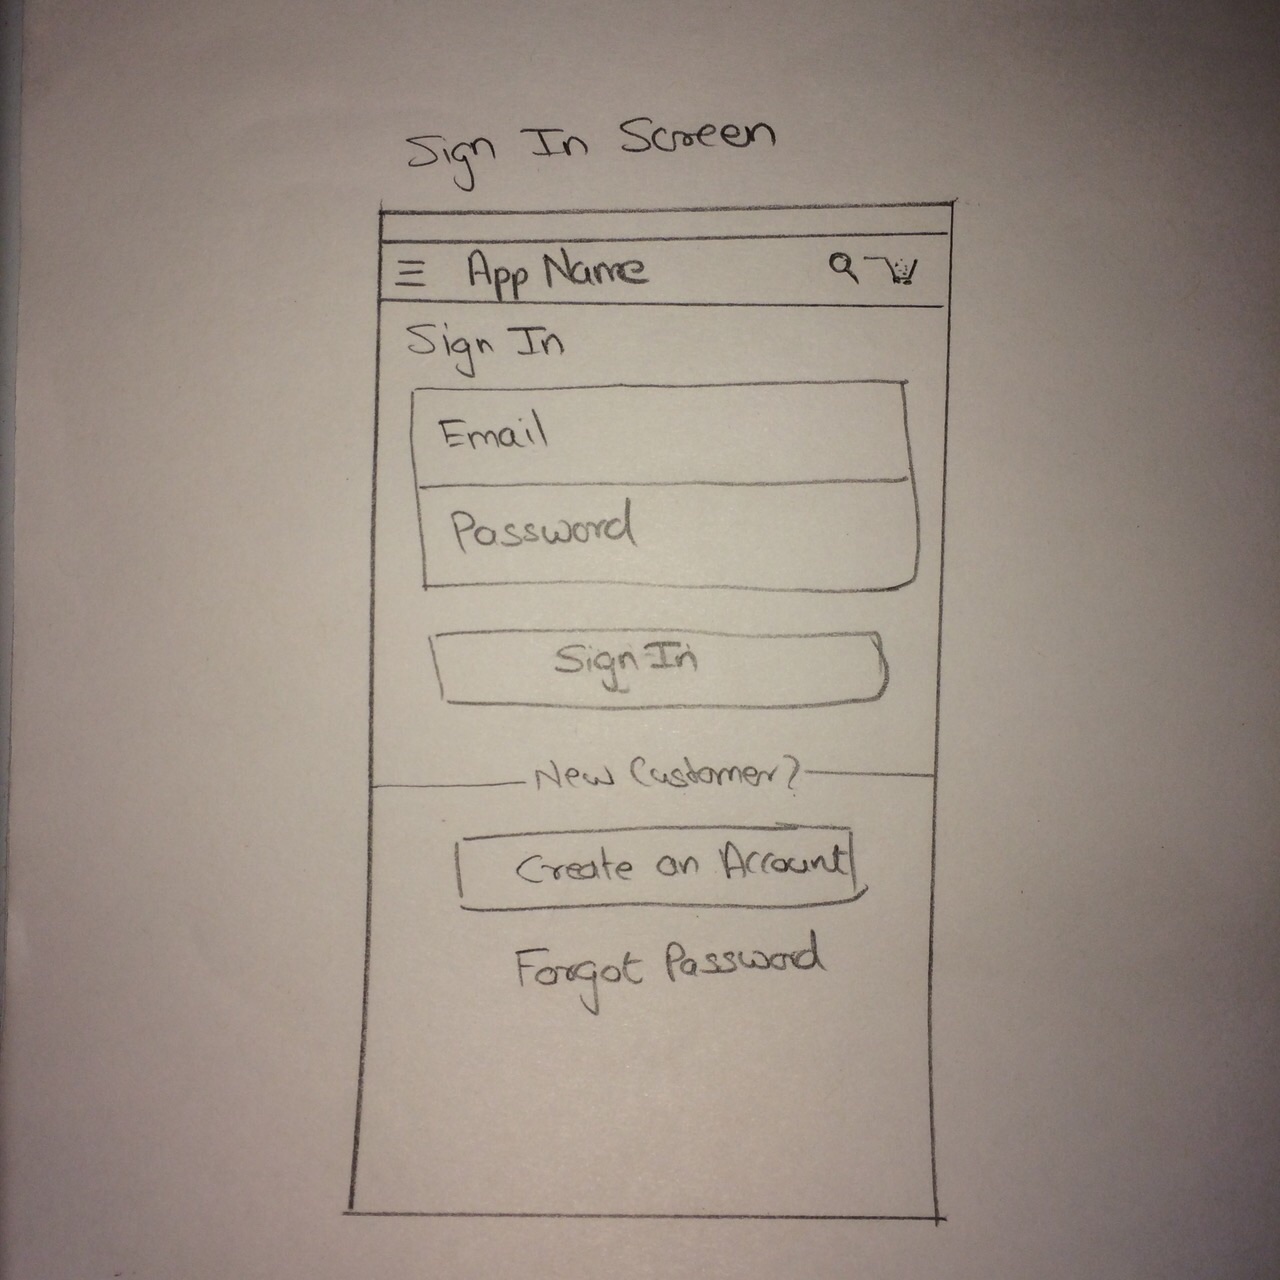 Sign In Screen
App Name
Sign In
Email
Password
Sign In
New Customer?
Create an Account
Forgot Password